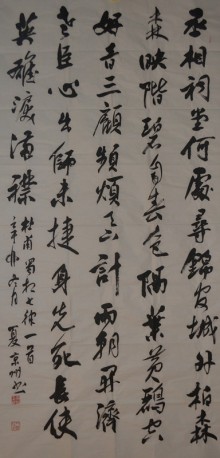 丞相祠堂何處尋錦官城外柏森
森映階碧草自春色隔葉黃鸝空
好音三顧頻煩天下計兩朝開濟
老臣心出師未捷身先死長使
英雄淚滿襟
杜甫蜀相七律一首
辛卯六月夏京州書